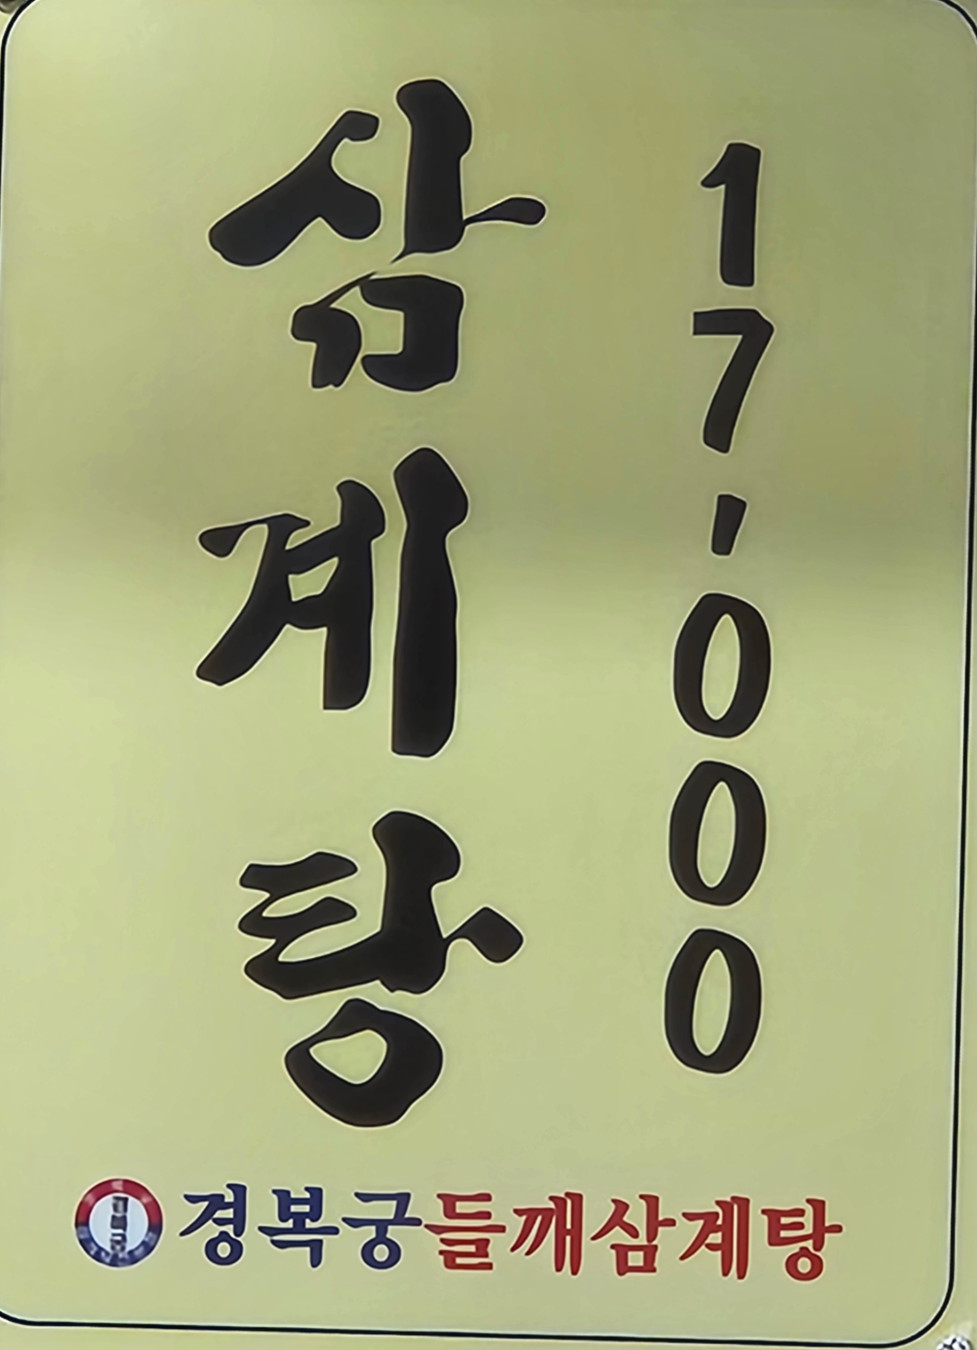 삼계탕
17,000
경복궁들깨삼계탕